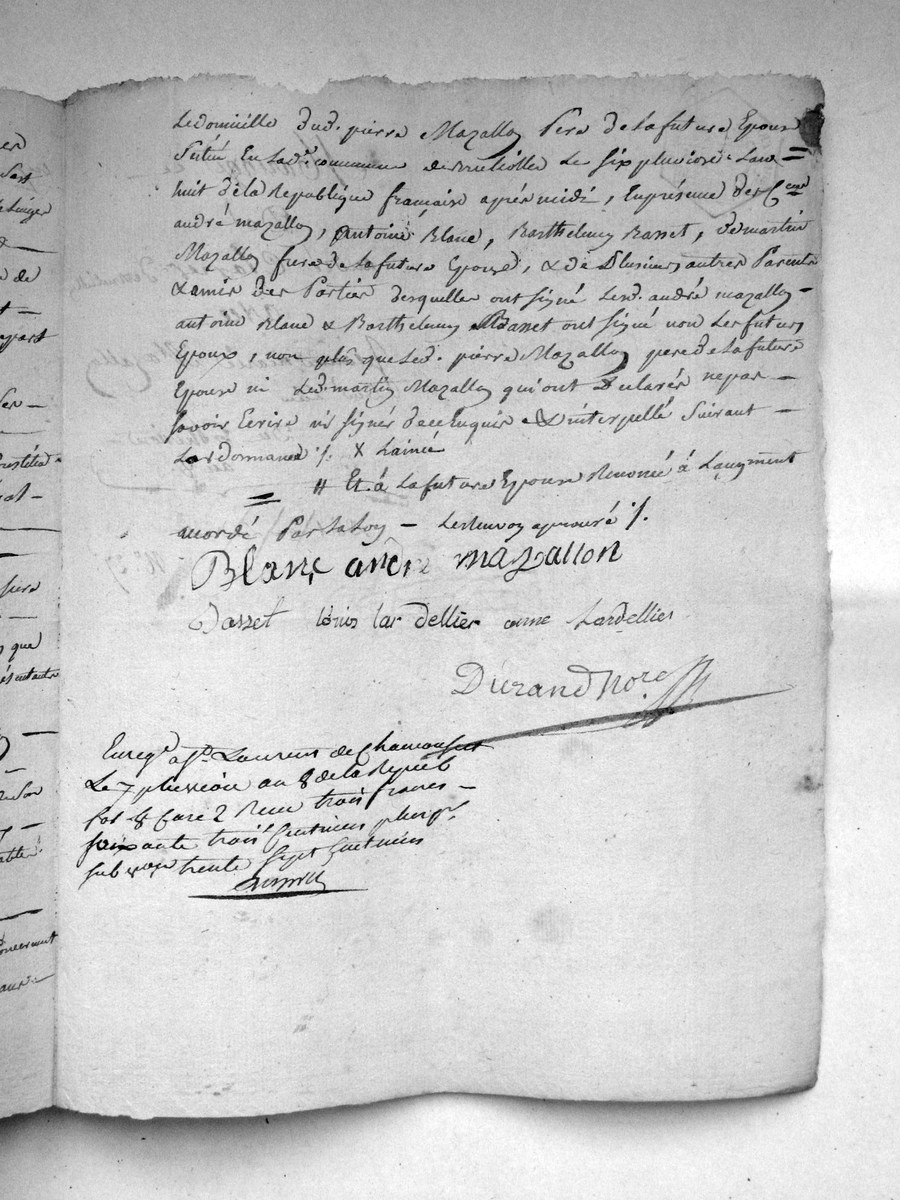 Le domicille dud. pierre Mazallon Pere de la future Epouse
Scitué En lad. commune de le six pluviose Lan =
huit de la Republique française après midi, En présence des Cens
andré mazallon, Antoine Blanc, Barthelemy Basset, de martin
Mazallon frere de la future Epouse, & de Plusieurs autres Parents
& amis des Parties desquelles ont signé Lesd. andré mazallon -
antoine Blanc & Barthelemy Basset ont signé non Les futurs
Epoux, non plus que Led. pierre Mazallon pere de la future
Epouse ni Led. martin Mazallon qui ont Declarés ne pas -
savoir Ecrire ni signer de ce enquis & d'interpellé Suivant -
Lordonnance %. X Lainé
= // Et à La future Epouse Renoncé à Laugment
accordé Par la Loy - Les Renvoy aprouvé %.
Blanc andre mazallon
Basset louis lardellier anne Lardellier
Durand Nore
Enregé a St. Laurens de Chamousset
Le 7 pluviose an 8 de la Repub
fol 8 Case 2 Reçu trois francs -
soixante trois Centimes plus pr.
subvon trente sept Centimes